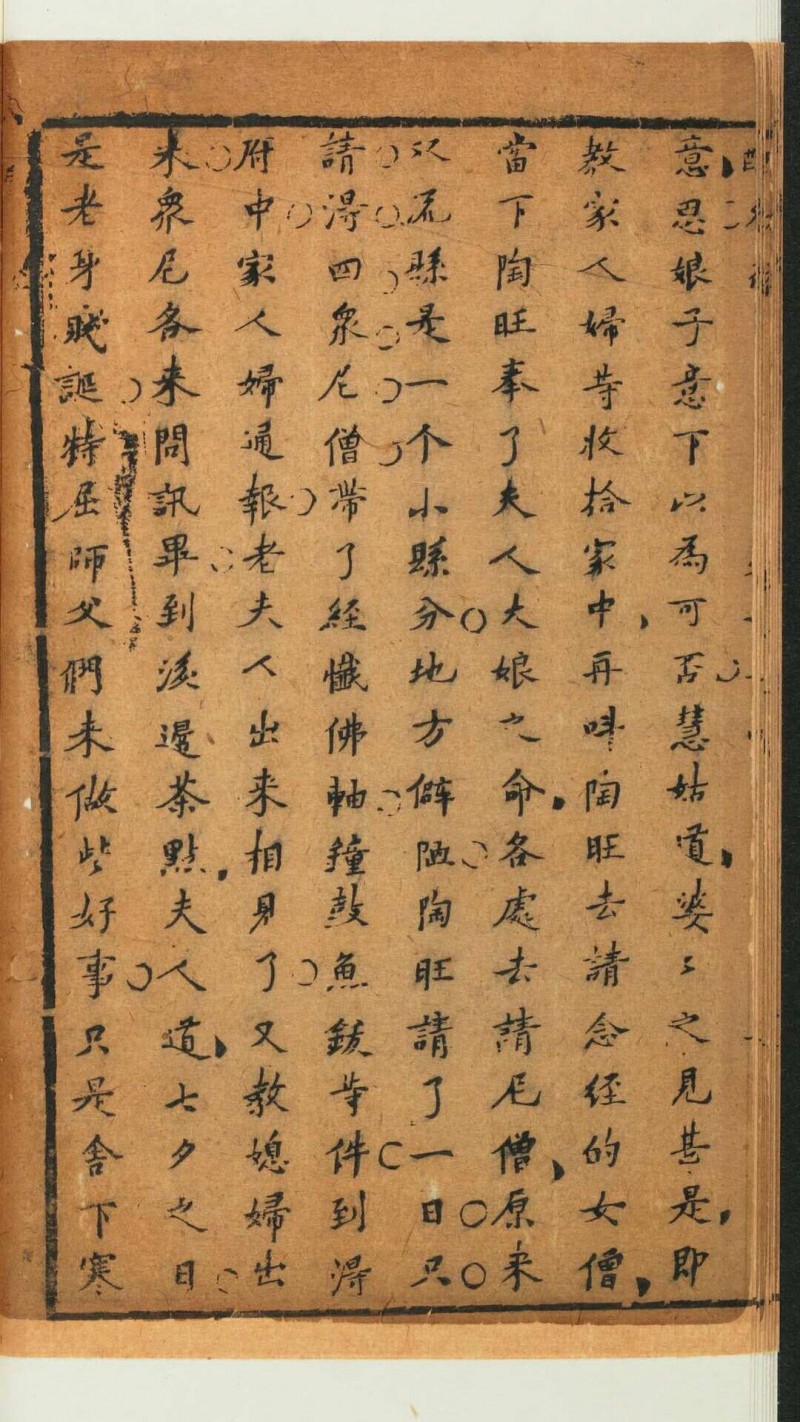 意思娘子意下以為可否慧姑道婆〻之見甚是即
教家人婦等收拾家中再呌陶旺去請念経的女僧
當下陶旺奉了夫人大娘之命各處去請尼僧原来
双流縣是一个小縣分地方僻陋陶旺請了一日只
請淂四衆尼僧帶了經懺佛軸鐘鼓魚鈸等件到淂
府中家人婦通報老夫人出来相見了又教媳婦出
来衆尼各来問訊畢到後邊茶點夫人道七夕之日
是老身賤誕特屈師父們来做些好事只是舎下寒